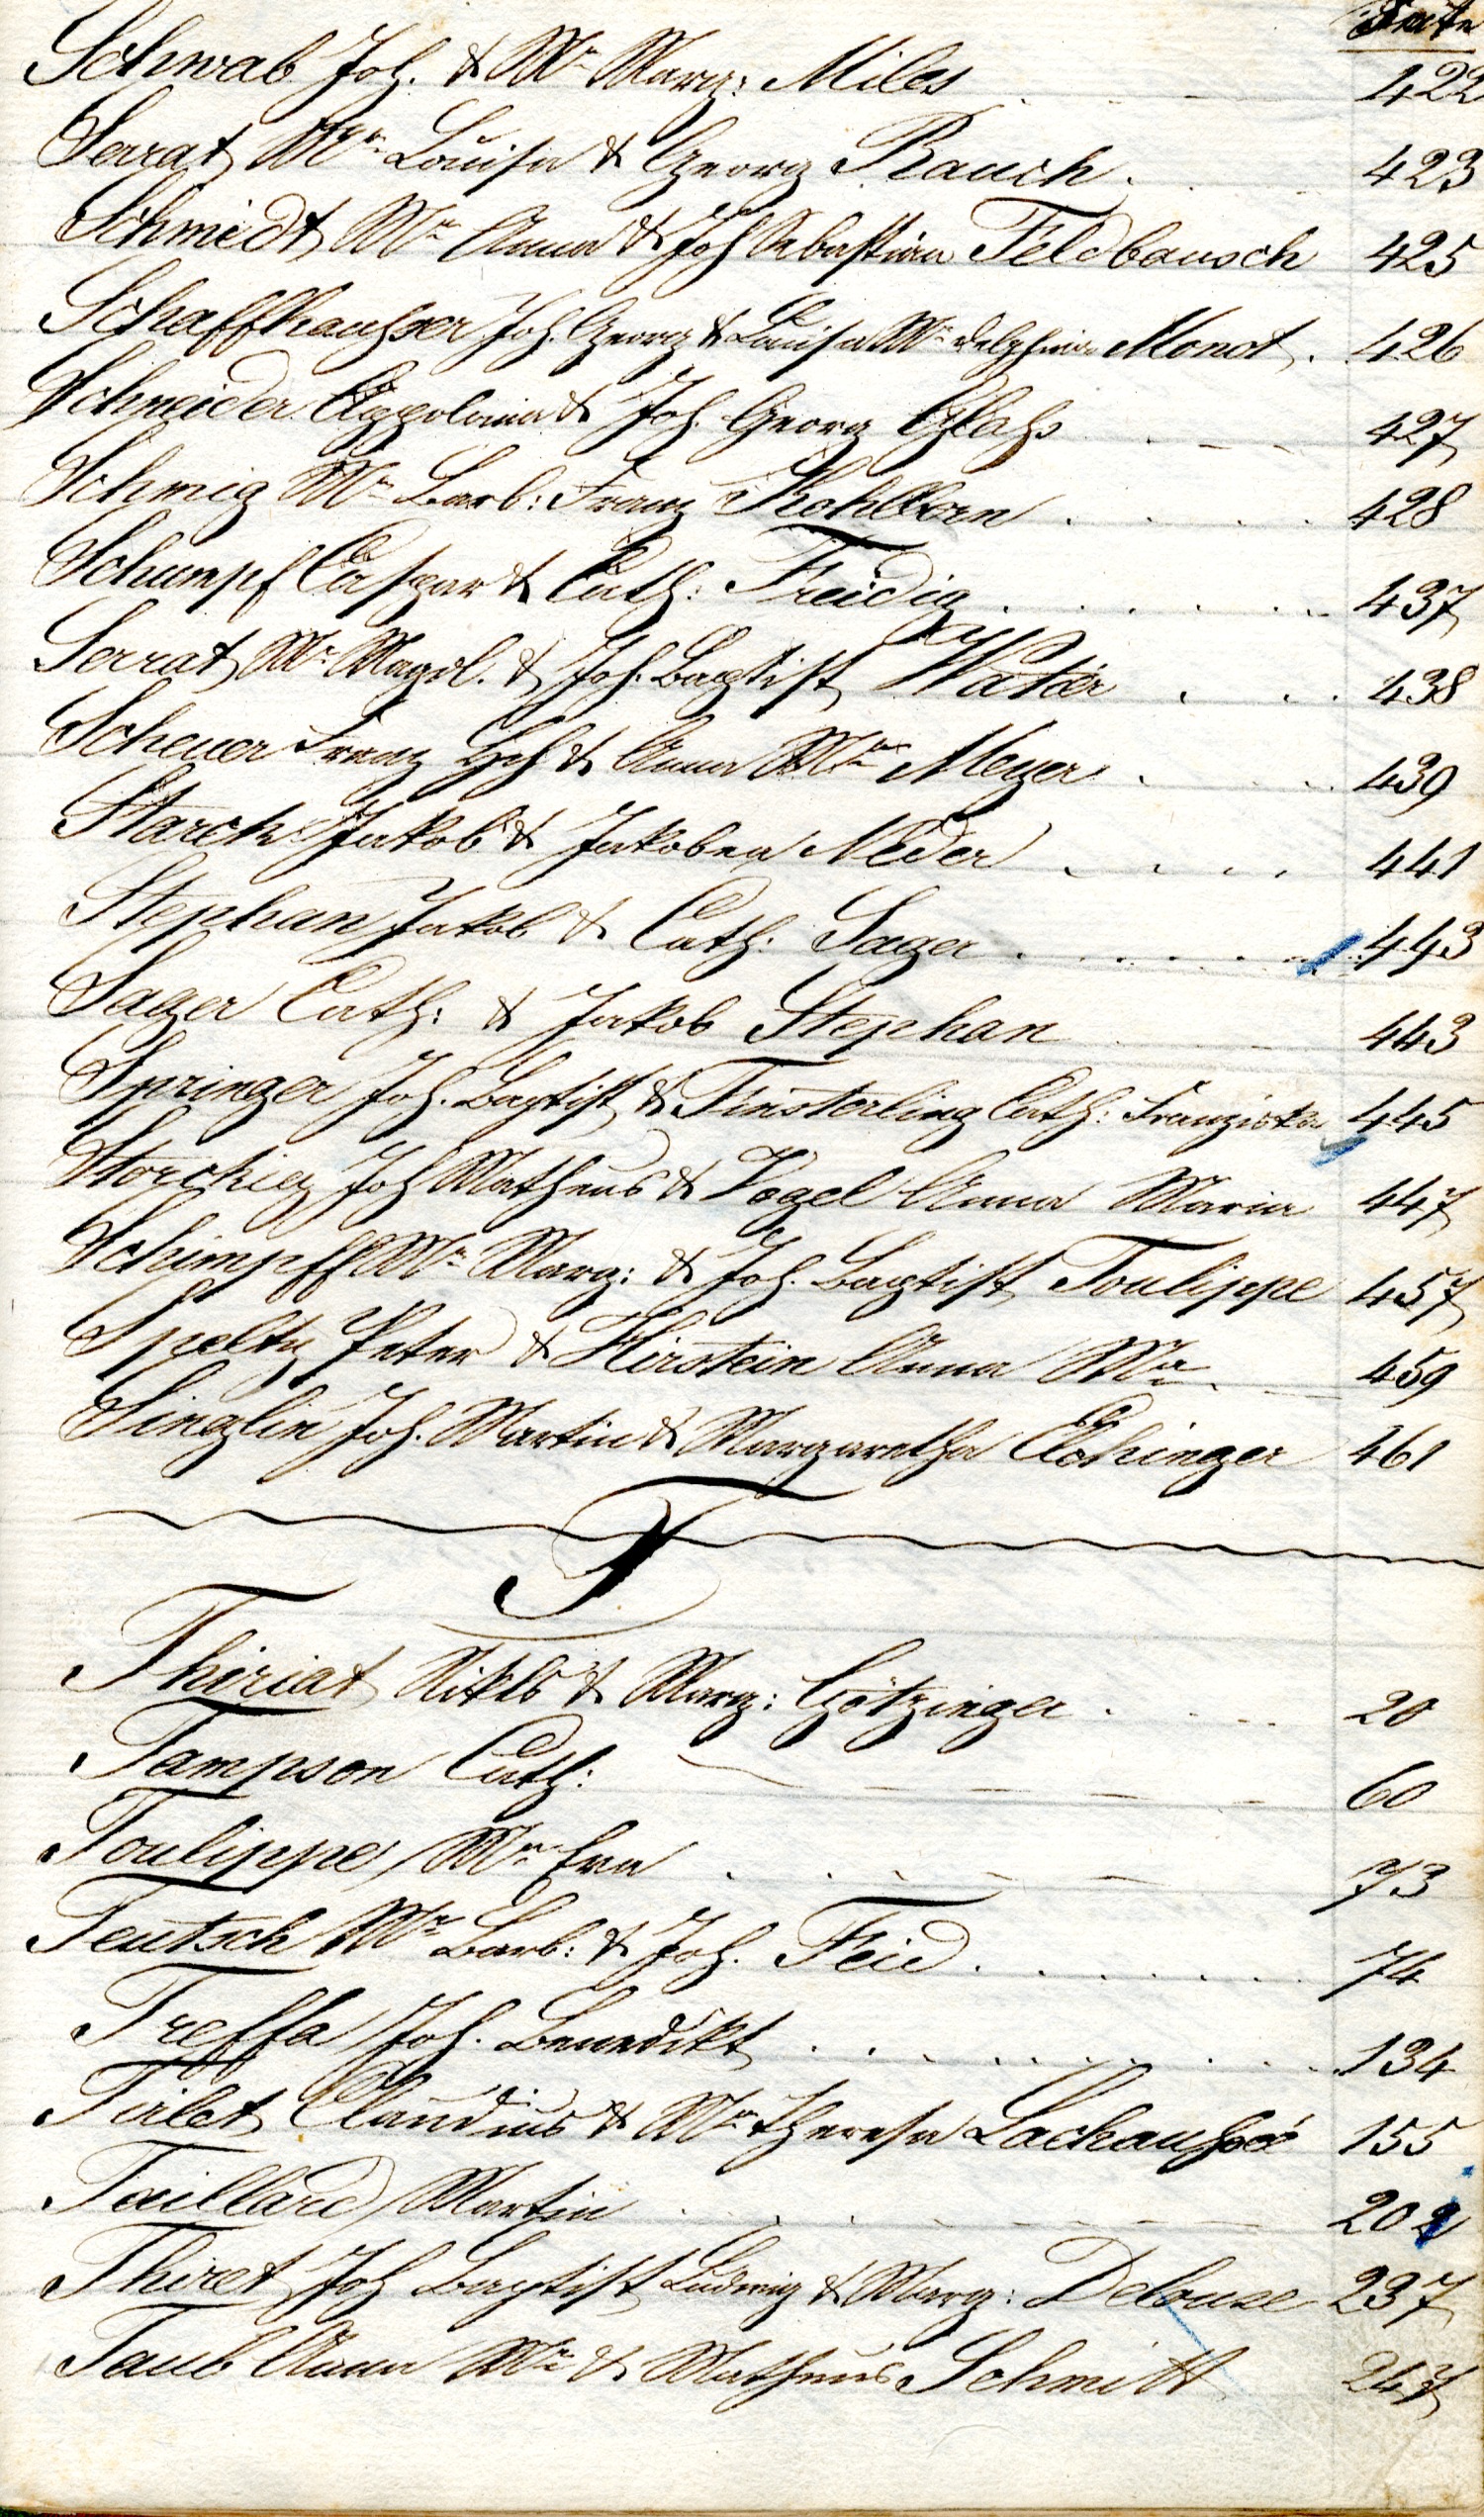 Seite
Schwab Joh. & Ma Marg: Miles 422
Serrat Ma Louisa & Georg Rauch. 423
Schmidt Ma Anna & Joh Sebastian Feldbausch 425
Schaffhausser Joh. Georg & Louisa Ma Delphine Monot. 426
Schneider Appolonia & Joh. Georg Glahs 427
Schmig Ma Barb: Franz Kohlborn 428
Schumpf Caspar & Cath: Freidig 437
Serrat Ma Magdl. & Joh. Baptist 438
Scheuer Franz & Anna Ma Meyer 439
Starck Jakob & Jakobea Neder 441
Stephan Jakob & Cath. Sager 443
Sager Cath: & Jakob Stephan 443
Springer Joh. Baptist & Finsterling Cath: Franziska 445
Storckig Joh Matheus & Vogel Anna Maria 447
Schimpff Ma Marg: & Joh. Baptist Toulippe 457
Speltz Peter & Hirstein Anna Ma 459
Singlin Joh. Martin & Margaretha Echinger 461
T
Thiriat Nikls & Marg: Götzinger 20
Tampson Cath: 60
Toulippe Ma Eva 73
Teutsch Ma Barb: & Joh. Feid 74
Treffa Joh. Benedikt 134
Tirlet Claudius & Ma Theresa 155
Taillard Martin 202
Thiret Joh Baptist Ludwig & Marg: Delouse 237
Taub Anna Ma & Matheus Schmitt 247